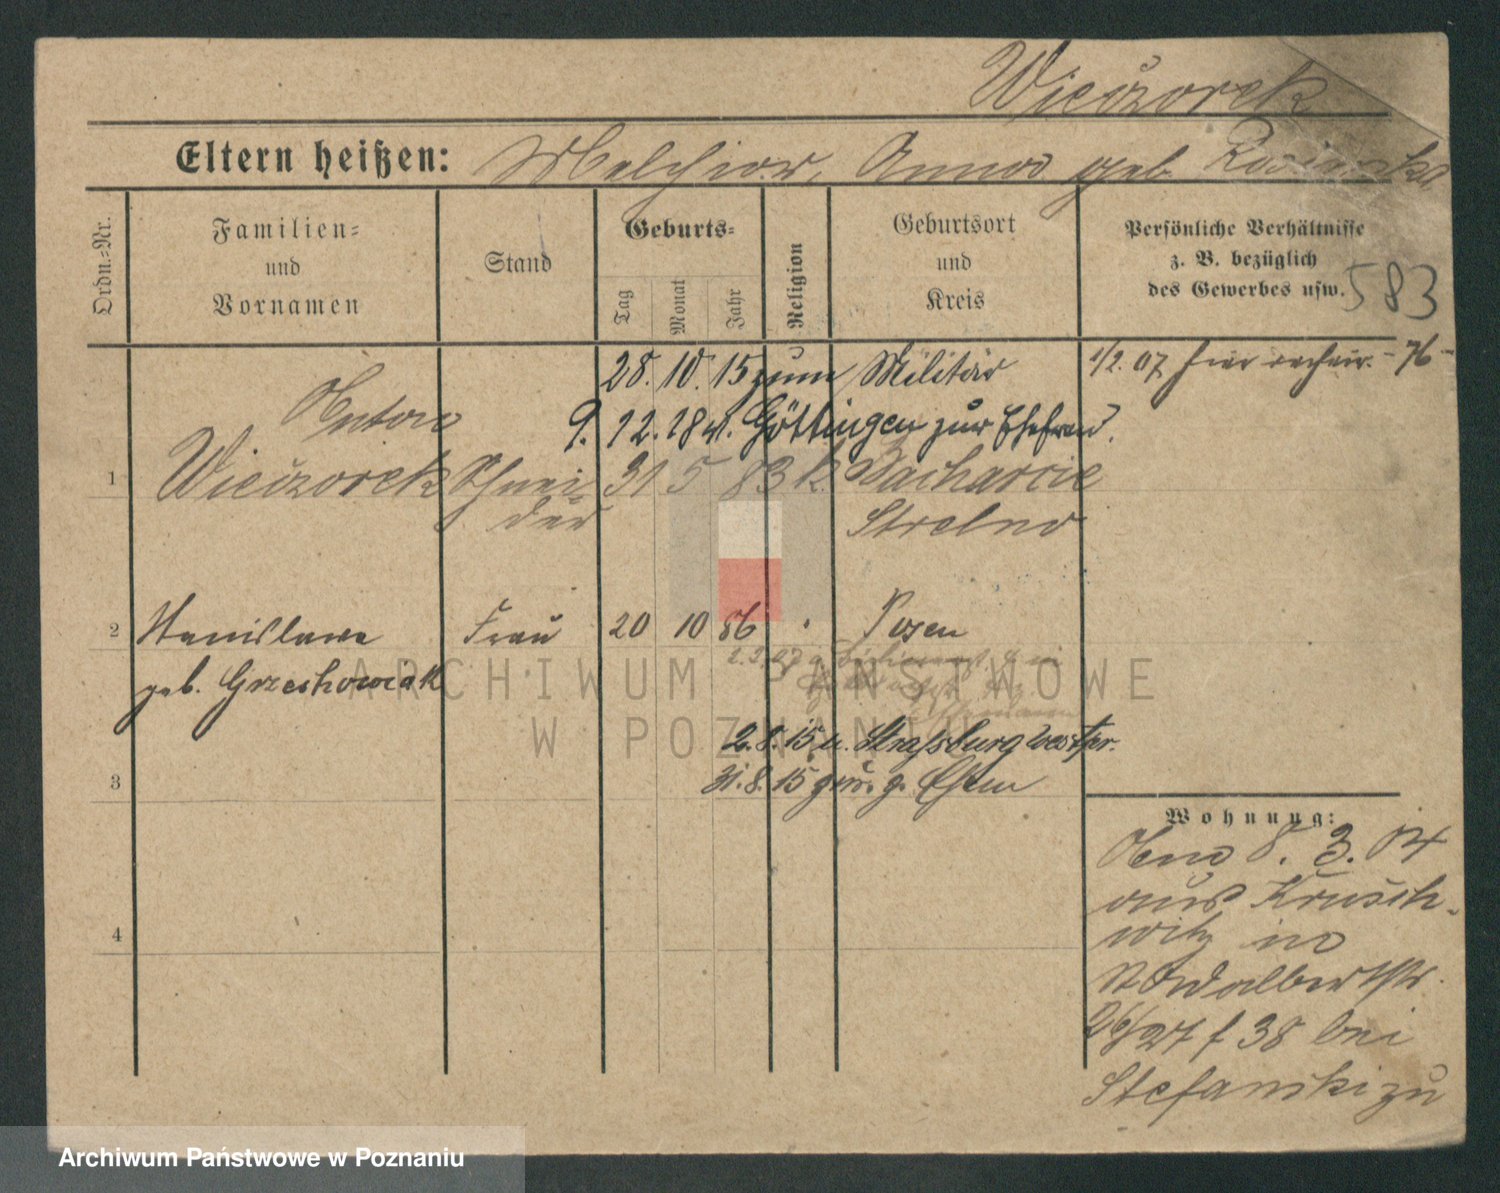 Wieczorek
Eltern heißen: Melchior, Anna geb.
Ordn.-Nr.
Familien- und Vornamen
Stand
Geburts-
Tag
Monat
Jahr
Religion
Geburtsort und Kreis
Persönliche Verhältnisse
z. B. bezüglich
des Gewerbes usw.
583
28. 10. 15 zum Militär
1/2. 07 hier 76
9. 12. 18 Göttingen zur Ehefrau.
Anton
1 Wieczorek Schnei- 31 5 83 k.
der Strelno
2 Stanislawa Frau 20 10 86 Posen
geb. Grzeskowiak
2. 8. 15 n. Strassburg Westpr.
3 31. 8. 15 zur. z. Ehem
Wohnung:
8. 3. 04
aus Krusch-
witz in
St Adalbertstr.
26/27 f 38 bei
Stefanski zu
4
ARCHIWUM PAŃSTWOWE
W POZNANIU
Archiwum Państwowe w Poznaniu